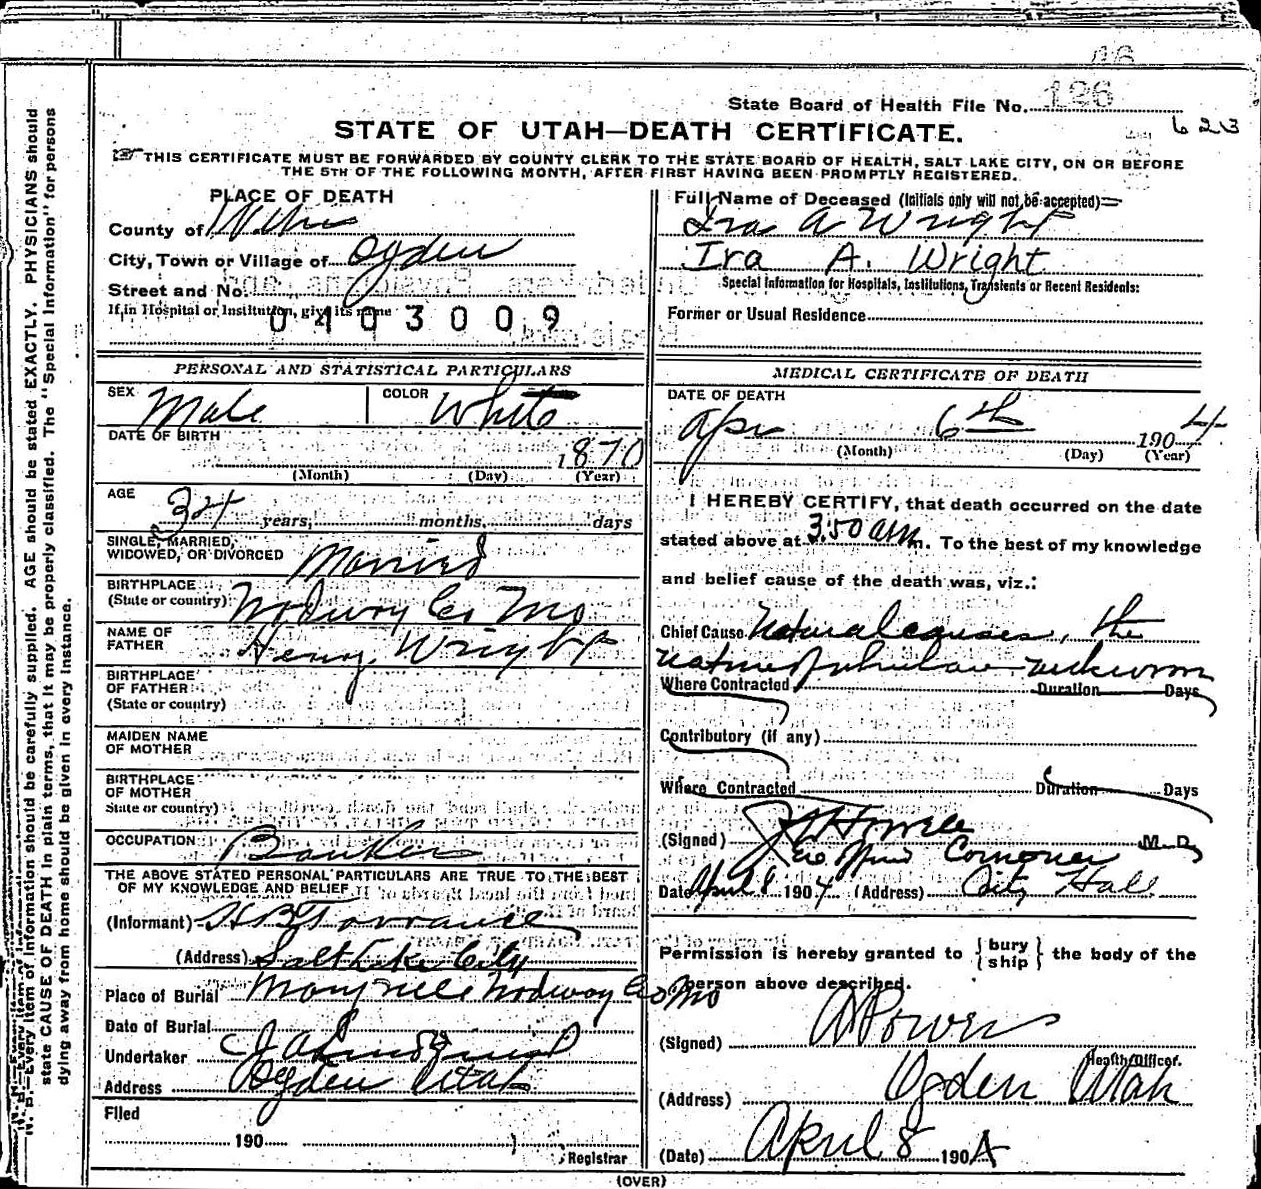 State Board of Health File No. 126
623
STATE OF UTAH—DEATH CERTIFICATE.
THIS CERTIFICATE MUST BE FORWARDED BY COUNTY CLERK TO THE STATE BOARD OF HEALTH, SALT LAKE CITY, ON OR BEFORE
THE 5TH OF THE FOLLOWING MONTH, AFTER FIRST HAVING BEEN PROMPTLY REGISTERED.
PLACE OF DEATH
County of
City, Town or Village of Ogden
Street and No.
If in Hospital or Institution, give its name
0403009
Full Name of Deceased (Initials only will not be accepted)
Ira A Wright
Ira A. Wright
Special Information for Hospitals, Institutions, Transients or Recent Residents:
Former or Usual Residence
PERSONAL AND STATISTICAL PARTICULARS
SEX Male COLOR White
DATE OF BIRTH 1870
(Month) (Day) (Year)
AGE
34 years, months, days
SINGLE, MARRIED,
WIDOWED, OR DIVORCED Married
BIRTHPLACE
(State or country) Nodway Co Mo
NAME OF
FATHER Henry Wright
BIRTHPLACE
OF FATHER
(State or country)
MAIDEN NAME
OF MOTHER
BIRTHPLACE
OF MOTHER
State or country)
OCCUPATION Banker
THE ABOVE STATED PERSONAL PARTICULARS ARE TRUE TO THE BEST
OF MY KNOWLEDGE AND BELIEF
(Informant) H B Torrance
(Address) Salt Lake City
Place of Burial Maryville Nodway Co Mo
Date of Burial
Undertaker
Address Ogden Utah
Filed
190
Registrar
MEDICAL CERTIFICATE OF DEATH
DATE OF DEATH
Apr 6th 1904
(Month) (Day) (Year)
I HEREBY CERTIFY, that death occurred on the date
stated above at 3.50 am m. To the best of my knowledge
and belief cause of the death was, viz.:
Chief Cause Natural causes, the
nature of which unknown
Where Contracted Duration Days
Contributory (if any)
Where Contracted Duration Days
(Signed) M. D.
Coroner
Date April 8 1904 (Address) City Hall
Permission is hereby granted to {bury ship} the body of the
person above described.
(Signed) Powers
Health Officer.
(Address) Ogden Utah
(Date) April 8 1904
(OVER)
N. B.—Every item of information should be carefully supplied. AGE should be stated EXACTLY. PHYSICIANS should
state CAUSE OF DEATH in plain terms, that it may be properly classified. The "Special Information" for persons
dying away from home should be given in every instance.